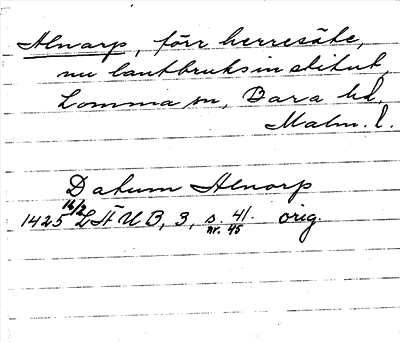 Alnarp, förr herresäte,
nu lantbruksinstitut,
Lomma sn, Bara hd,
Malm. l.
Datum Alnarp
1425 16/2 LÄUB, 3, s. 41. orig.
nr. 45